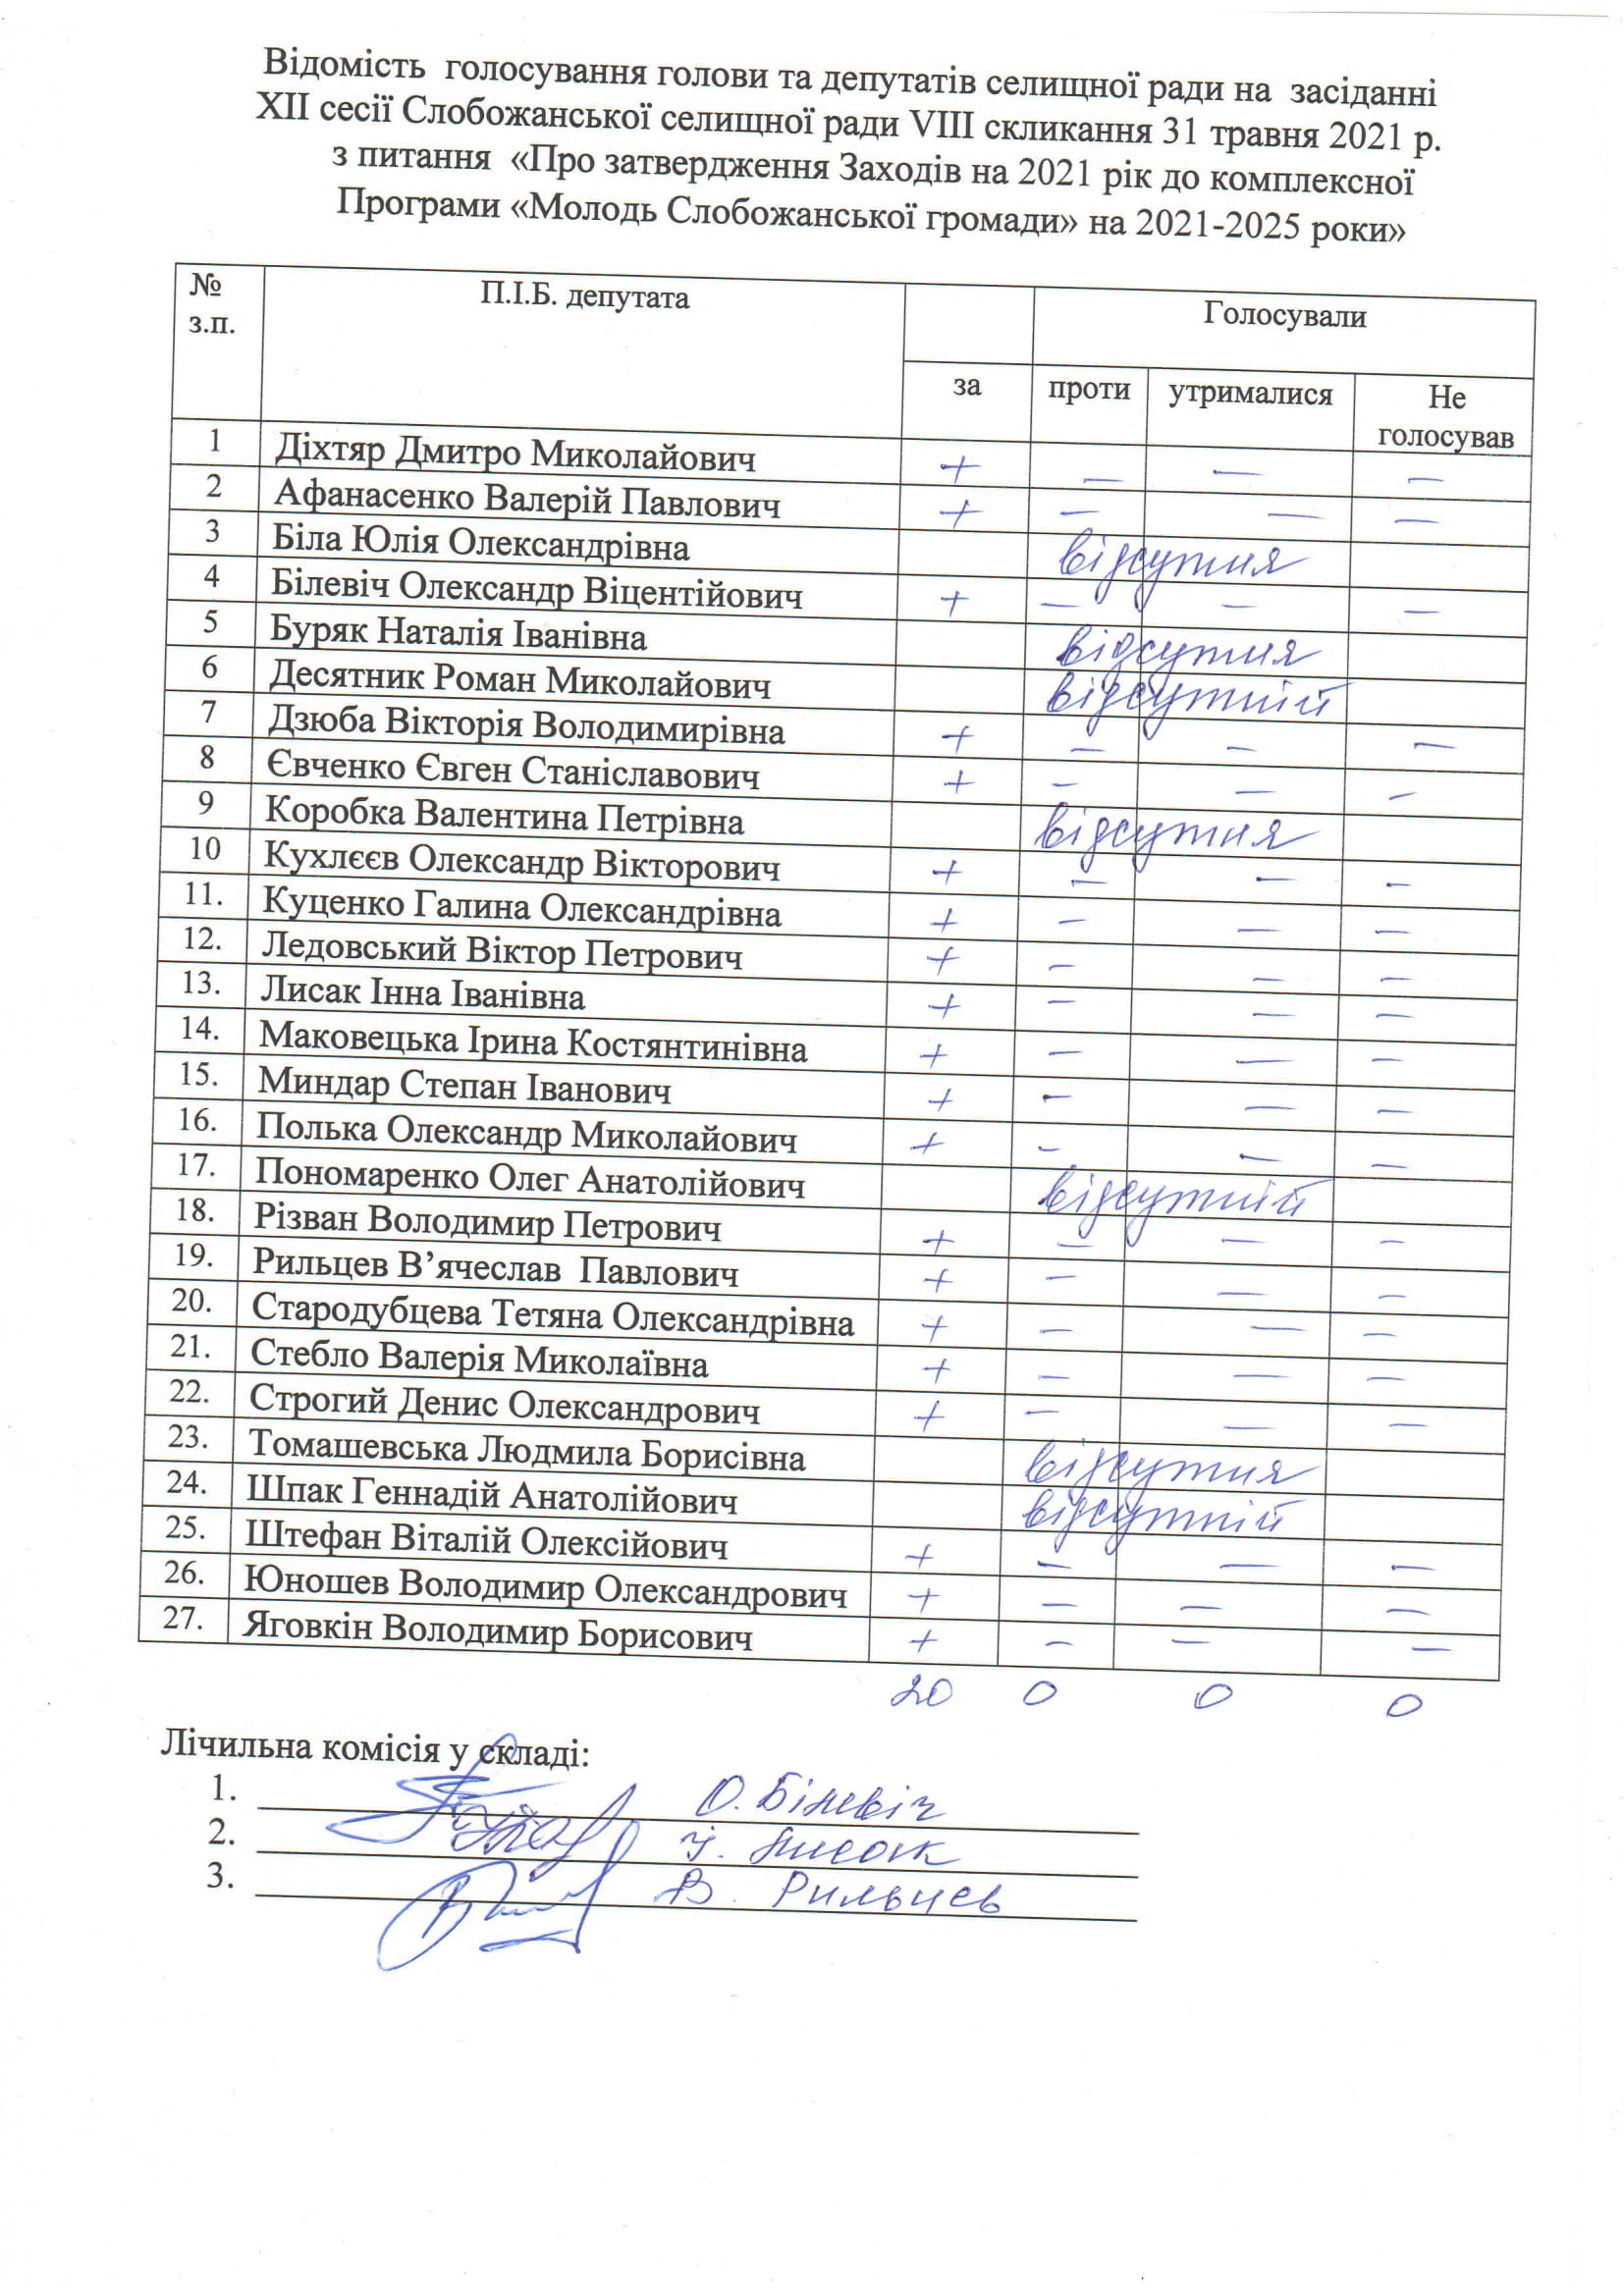 Відомість голосування голови та депутатів селищної ради на засіданні
XII сесії Слобожанської селищної ради VIII скликання 31 травня 2021 р.
з питання «Про затвердження Заходів на 2021 рік до комплексної
Програми «Молодь Слобожанської громади» на 2021-2025 роки»
№ П.І.Б. депутата Голосували
з.п.
за проти утрималися Не
голосував
1 Діхтяр Дмитро Миколайович + — — —
2 Афанасенко Валерій Павлович + — — —
3 Біла Юлія Олександрівна відсутня
4 Білевіч Олександр Віцентійович + — — —
5 Буряк Наталія Іванівна відсутня
6 Десятник Роман Миколайович відсутній
7 Дзюба Вікторія Володимирівна + — — —
8 Євченко Євген Станіславович + — — —
9 Коробка Валентина Петрівна відсутня
10 Кухлєєв Олександр Вікторович + — — —
11. Куценко Галина Олександрівна + — — —
12. Ледовський Віктор Петрович + — — —
13. Лисак Інна Іванівна + — — —
14. Маковецька Ірина Костянтинівна + — — —
15. Миндар Степан Іванович + — — —
16. Полька Олександр Миколайович + — — —
17. Пономаренко Олег Анатолійович відсутній
18. Різван Володимир Петрович + — — —
19. Рильцев В’ячеслав Павлович + — — —
20. Стародубцева Тетяна Олександрівна + — — —
21. Стебло Валерія Миколаївна + — — —
22. Строгий Денис Олександрович + — — —
23. Томашевська Людмила Борисівна відсутня
24. Шпак Геннадій Анатолійович відсутній
25. Штефан Віталій Олексійович + — — —
26. Юношев Володимир Олександрович + — — —
27. Яговкін Володимир Борисович + — — —
20 0 0 0
Лічильна комісія у складі:
1. О. Білевіч
2. І. Лисак
3. В. Рильцев